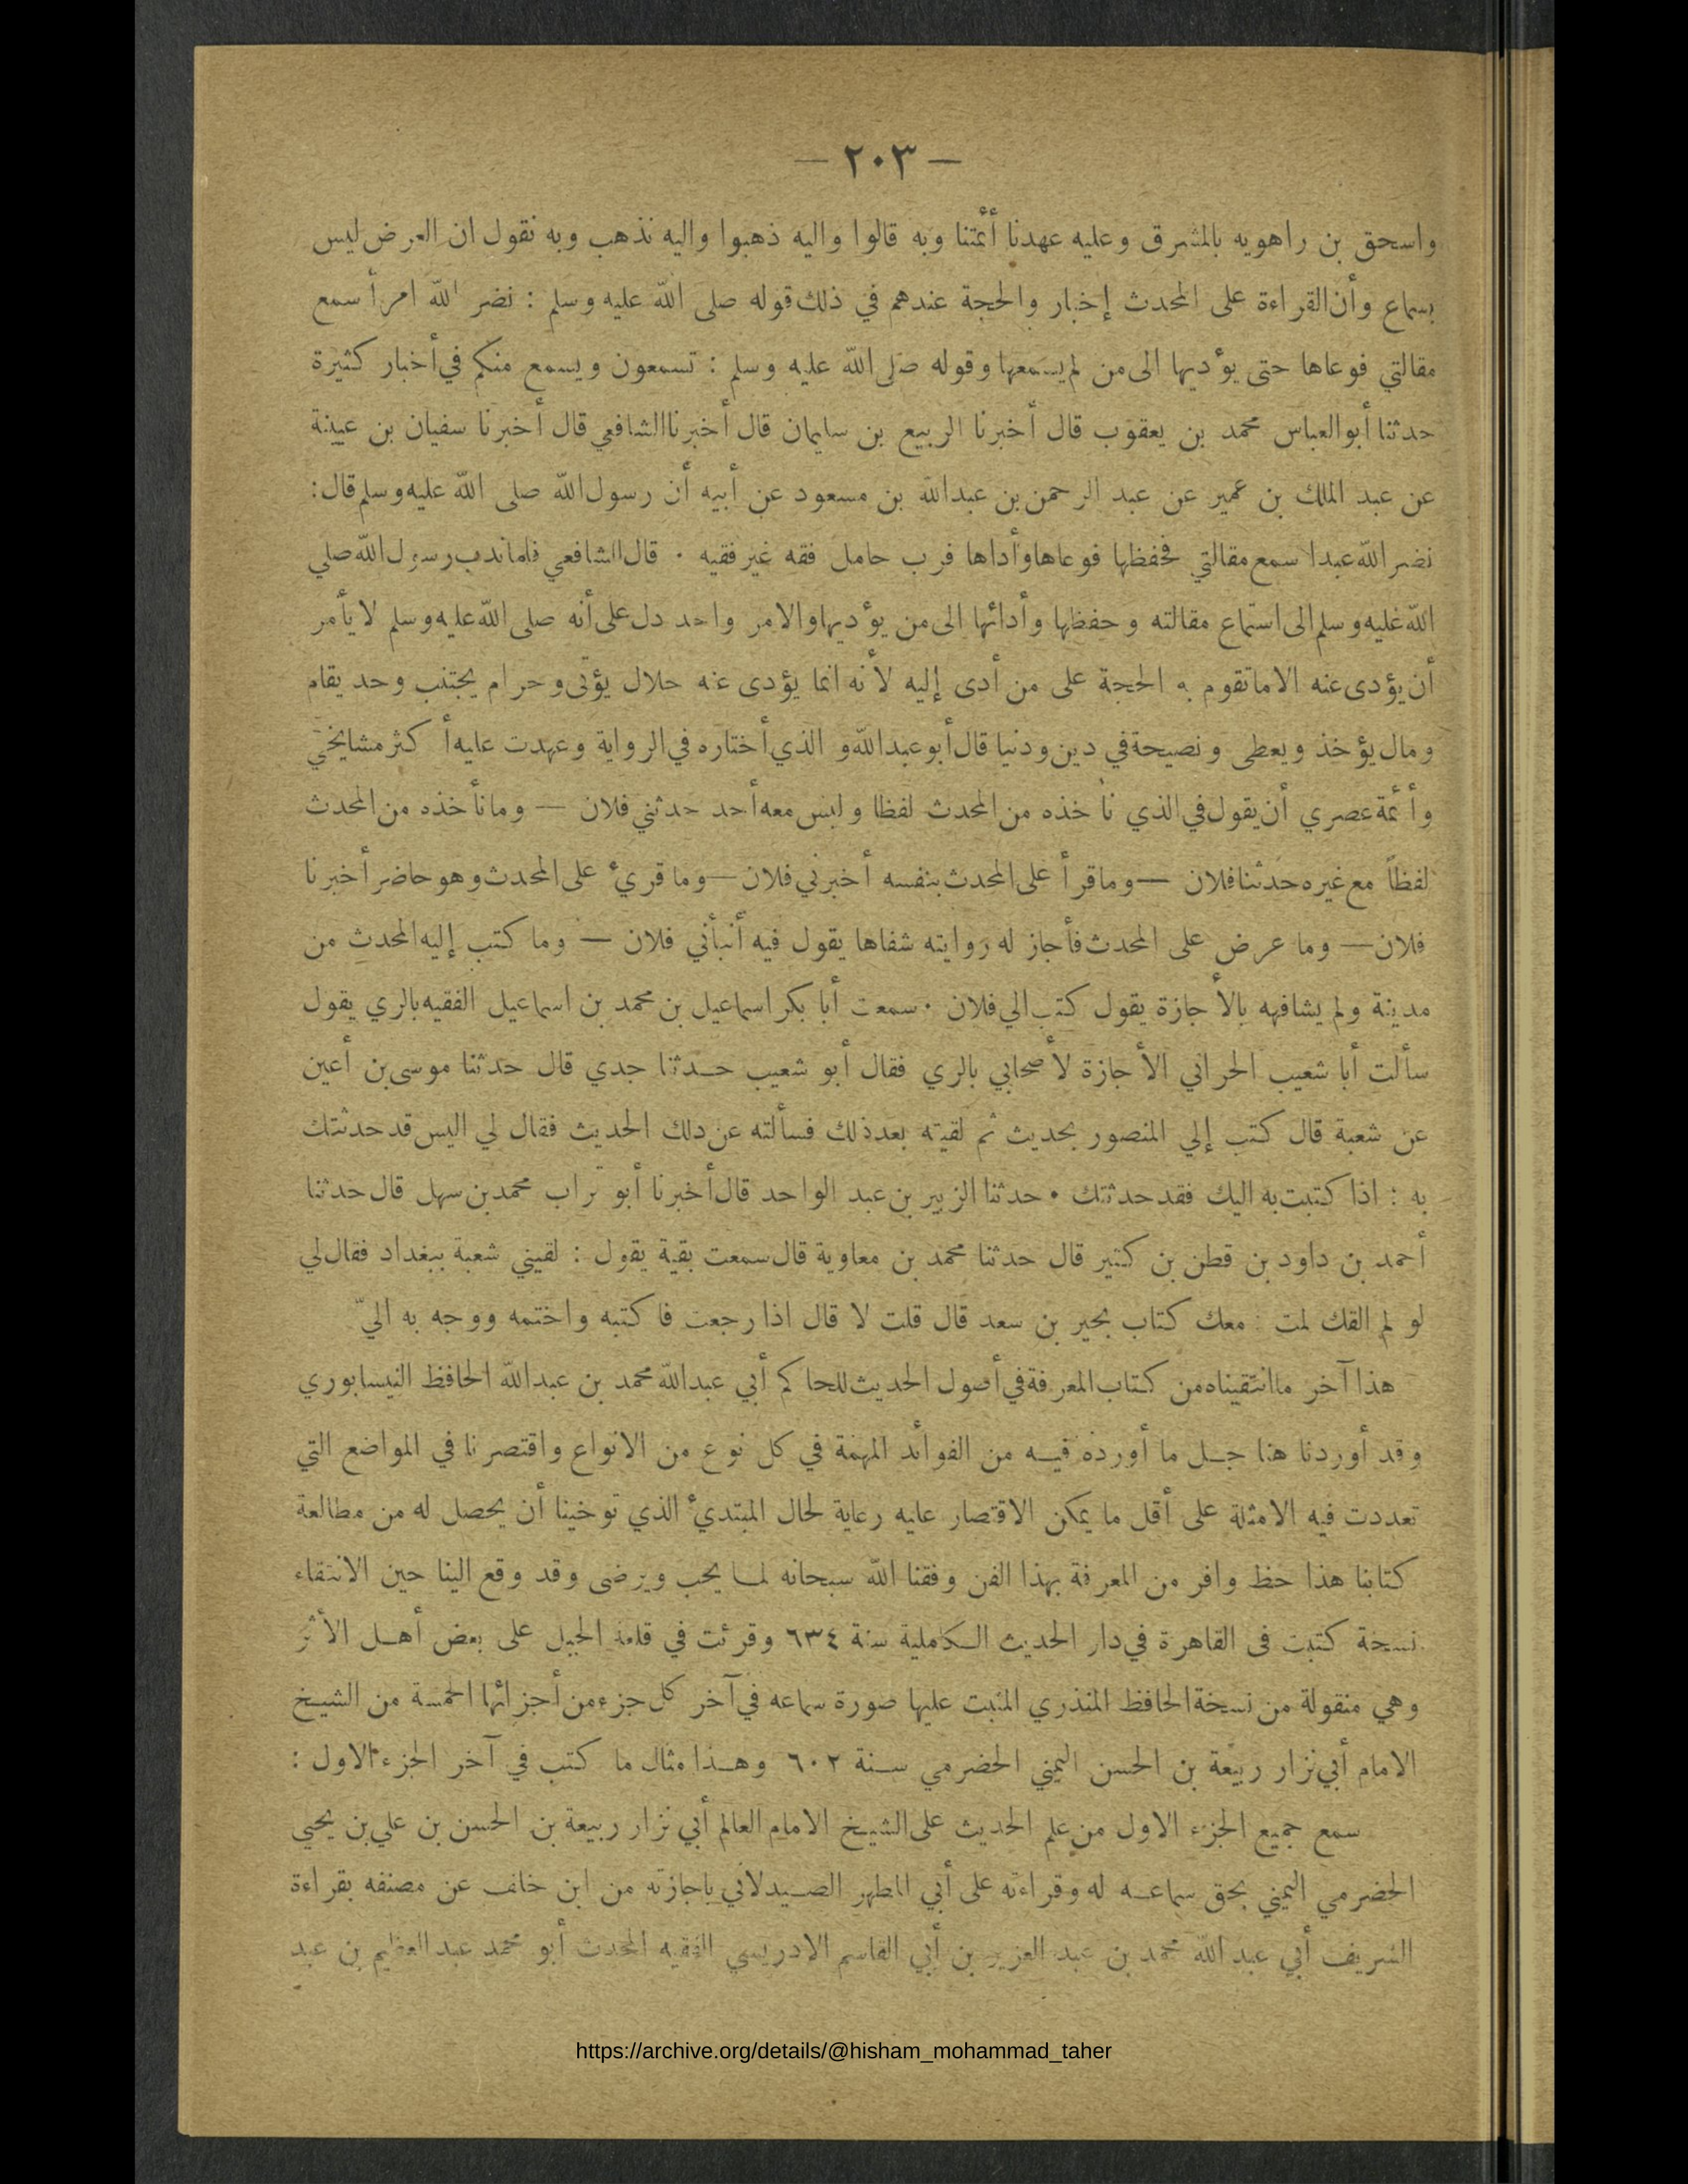 — ٢٠٣ —
واسحق بن راهويه بالمشرق وعليه عهدنا أئمتنا وبه قالوا واليه ذهبوا واليه نذهب وبه نقول ان العرض ليس
بسماع وأن القراءة على المحدث إخبار والحجة عندهم في ذلك قوله صلى الله عليه وسلم : نضر الله امرأ سمع
مقالتي فوعاها حتى يؤديها الى من لم يسمعها وقوله صلى الله عليه وسلم : تسمعون ويسمع منكم في أخبار كثيرة
حدثنا أبو العباس محمد بن يعقوب قال أخبرنا الربيع بن سليمان قال أخبرنا الشافعي قال أخبرنا سفيان بن عيينة
عن عبد الملك بن عمير عن عبد الرحمن بن عبد الله بن مسعود عن أبيه أن رسول الله صلى الله عليه وسلم قال:
نضر الله عبدا سمع مقالتي فحفظها فوعاها وأداها فرب حامل فقه غير فقيه ٠ قال الشافعي فلما ندب رسول الله صلي
الله عليه وسلم الى استماع مقالته وحفظها وأدائها الى من يؤديها والامر واحد دل على أنه صلى الله عليه وسلم لا يأمر
أن يؤدى عنه الا ما تقوم به الحجة على من أدى إليه لأنه انما يؤدى عنه حلال يؤتى وحرام يجتنب وحد يقام
ومال يؤخذ ويعطى ونصيحة في دين ودنيا قال أبو عبد الله والذي أختاره في الرواية وعهدت عليه أكثر مشايخي
وأئمة عصري أن يقول في الذي نأخذه من المحدث لفظا وليس معه أحد حدثني فلان — وما نأخذه من المحدث
لفظاً مع غيره حدثنا فلان — وما قرأ على المحدث بنفسه أخبرني فلان — وما قريء على المحدث وهو حاضر أخبرنا
فلان — وما عرض على المحدث فأجاز له روايته شفاها يقول فيه أنبأني فلان — وما كتب إليه المحدث من
مدينة ولم يشافهه بالأجازة يقول كتب الي فلان ٠ سمعت أبا بكر اسماعيل بن محمد بن اسماعيل الفقيه بالري يقول
سألت أبا شعيب الحراني الأجازة لأصحابي بالري فقال أبو شعيب حدثنا جدي قال حدثنا موسى بن أعين
عن شعبة قال كتب إلي المنصور بحديث ثم لقيته بعد ذلك فسألته عن ذلك الحديث فقال لي اليس قد حدثتك
به : اذا كتبت به اليك فقد حدثتك ٠ حدثنا الزبير بن عبد الواحد قال أخبرنا أبو تراب محمد بن سهل قال حدثنا
أحمد بن داود بن قطن بن كثير قال حدثنا محمد بن معاوية قال سمعت بقية يقول : لقيني شعبة ببغداد فقال لي
لو لم القك لمت : معك كتاب بحير بن سعد قال قلت لا قال اذا رجعت فاكتبه واختمه ووجه به اليّ
هذا آخر ما انتقيناه من كتاب المعرفة في أصول الحديث للحاكم أبي عبد الله محمد بن عبد الله الحافظ النيسابوري
وقد أوردنا هنا جل ما أورده فيه من الفوائد المهمة في كل نوع من الانواع واقتصرنا في المواضع التي
تعددت فيه الامثلة على أقل ما يمكن الاقتصار عليه رعاية لحال المبتديء الذي توخينا أن يحصل له من مطالعة
كتابنا هذا حظ وافر من المعرفة بهذا الفن وفقنا الله سبحانه لما يحب ويرضى وقد وقع الينا حين الانتقاء
نسخة كتبت في القاهرة في دار الحديث الكاملية سنة ٦٣٤ وقرئت في قلعة الجبل على بعض أهل الأثر
وهي منقولة من نسخة الحافظ المنذري المثبت عليها صورة سماعه في آخر كل جزء من أجزائها الخمسة من الشيخ
الامام أبي نزار ربيعة بن الحسن اليمني الحضرمي سنة ٦٠٢ وهذا مثال ما كتب في آخر الجزء الاول :
سمع جميع الجزء الاول من علم الحديث على الشيخ الامام العالم أبي نزار ربيعة بن الحسن بن علي بن يحيي
الحضرمي اليمني بحق سماعه له وقراءته على أبي المطهر الصيدلاني باجازته من ابن خلف عن مصنفه بقراءة
الشريف أبي عبد الله محمد بن عبد العزيز بن أبي القاسم الادريسي الفقيه المحدث أبو محمد عبد العظيم بن عبد
https://archive.org/details/@hisham_mohammad_taher